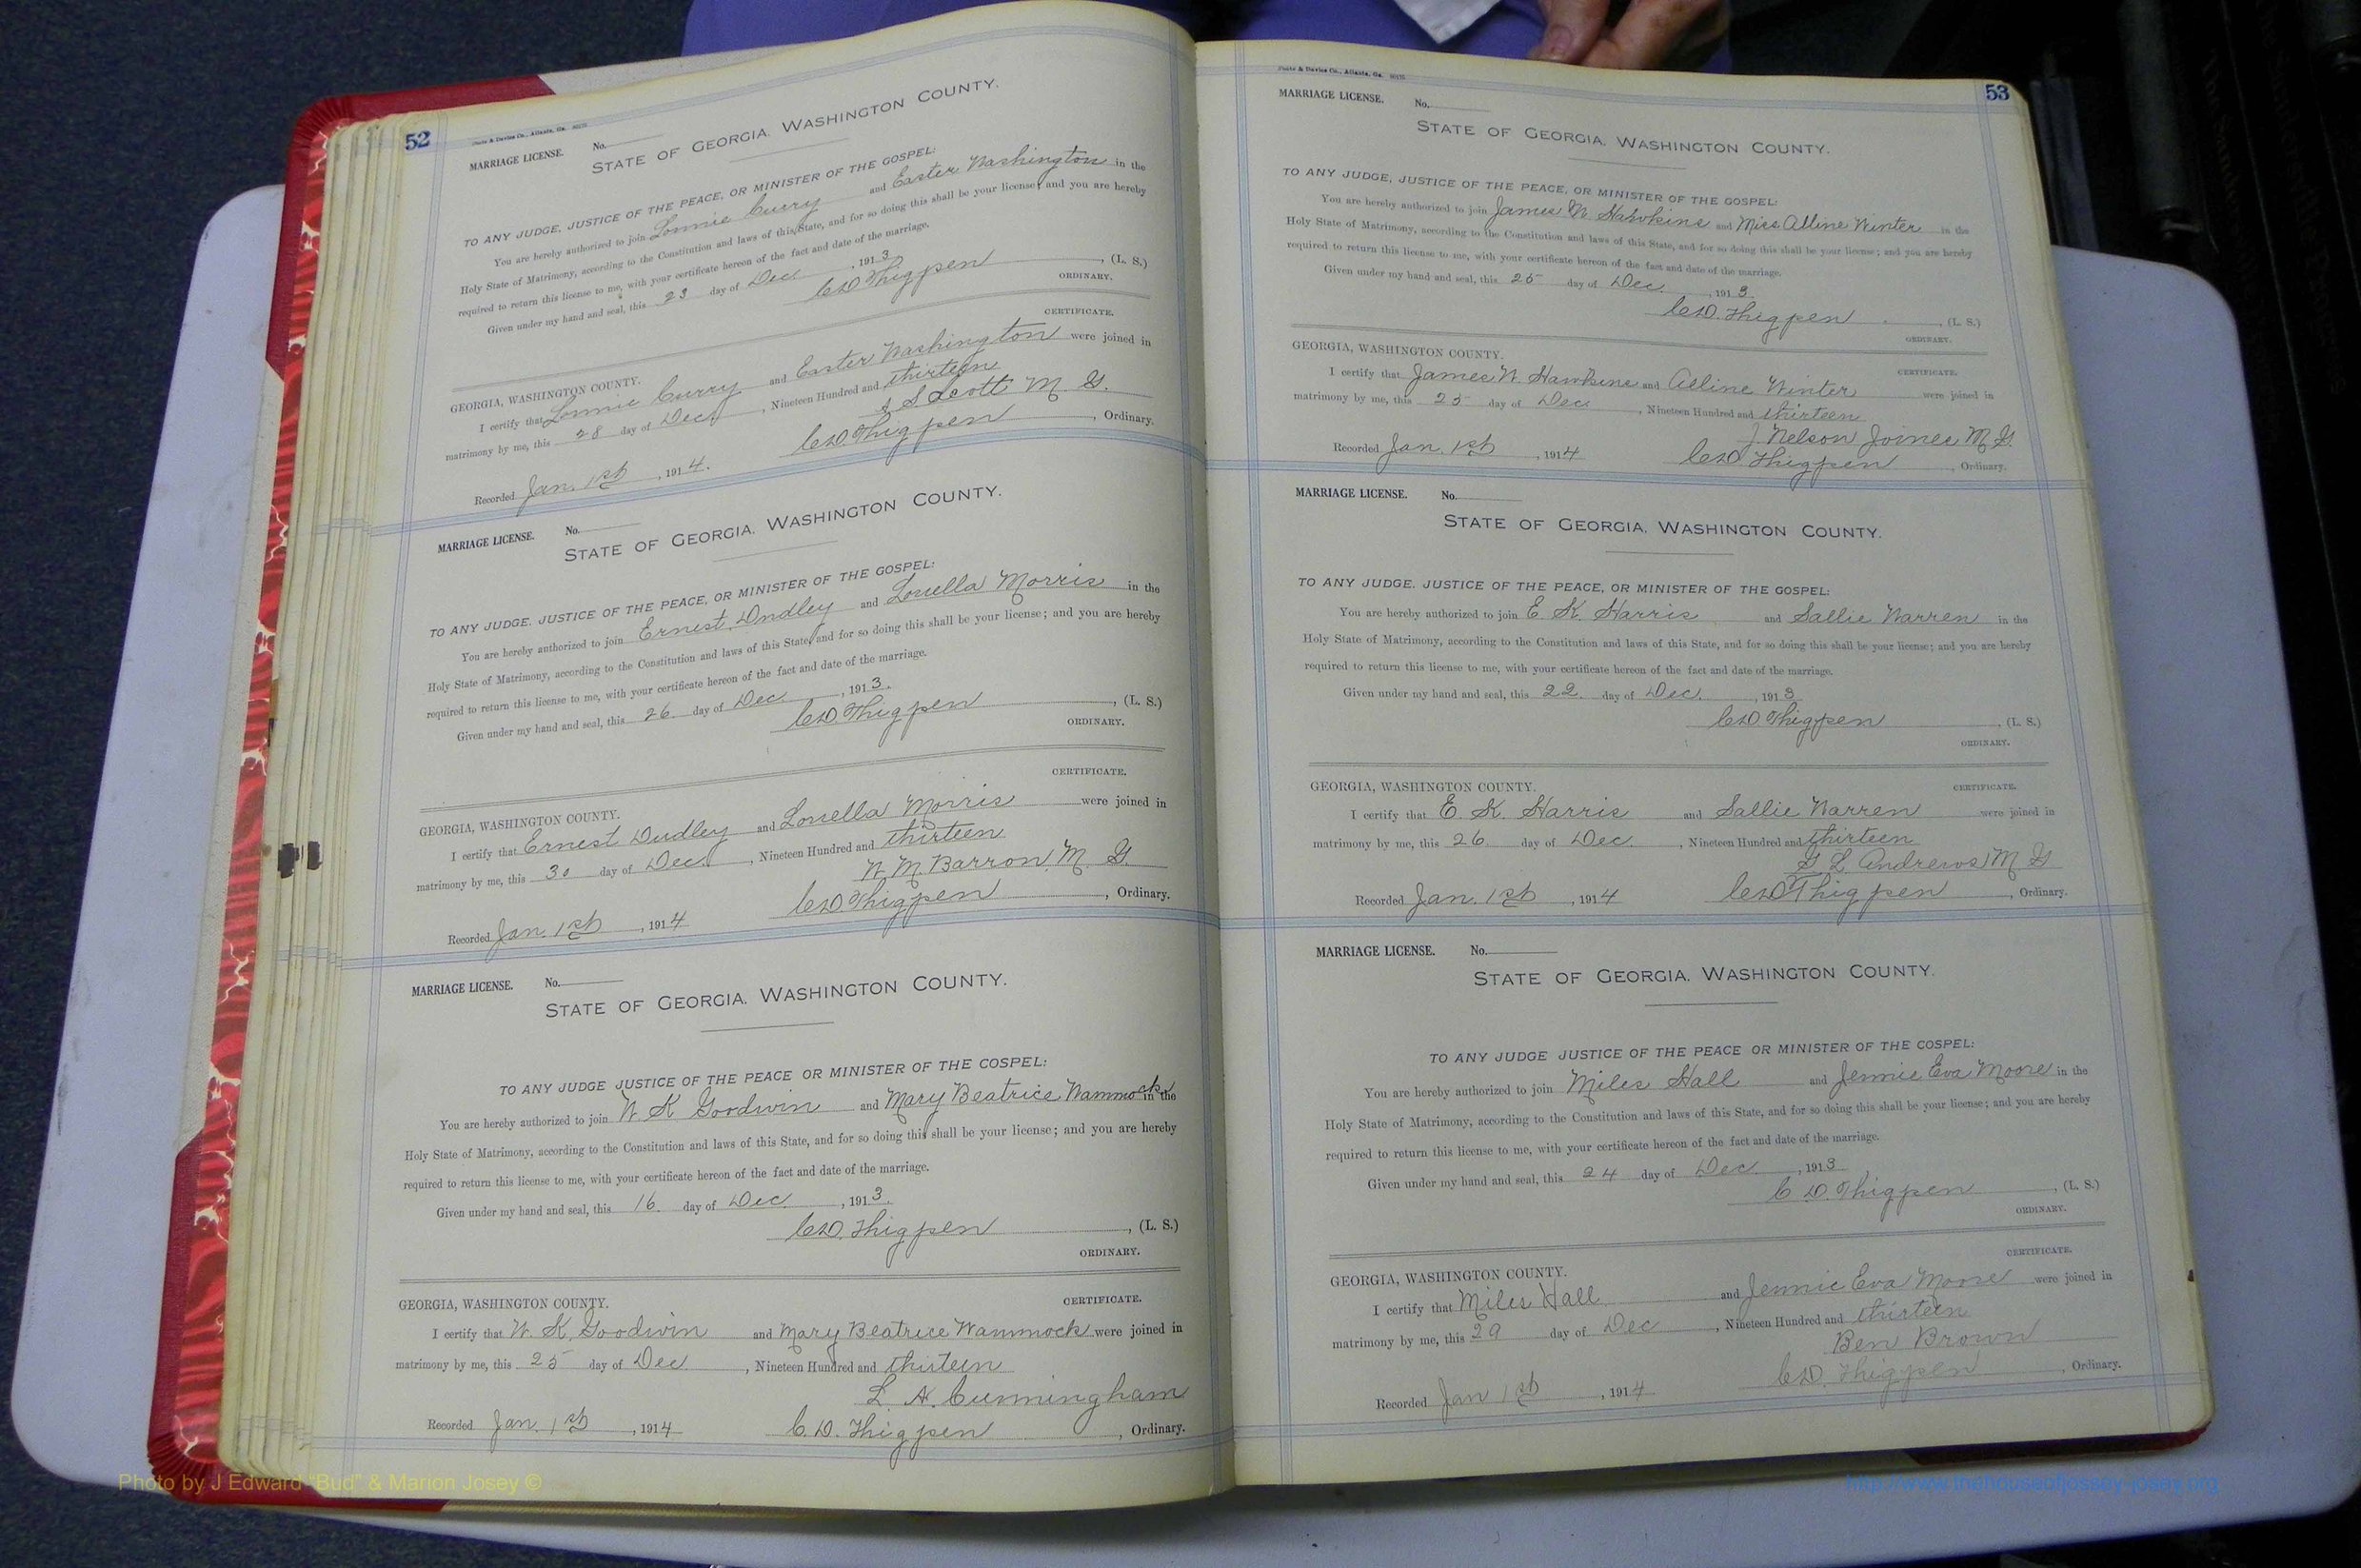 52
MARRIAGE LICENSE. No.
STATE OF GEORGIA, WASHINGTON COUNTY.
TO ANY JUDGE, JUSTICE OF THE PEACE, OR MINISTER OF THE GOSPEL:
You are hereby authorized to join Lonnie Curry and Easter Washington in the
Holy State of Matrimony, according to the Constitution and laws of this State, and for so doing this shall be your license; and you are hereby
required to return this license to me, with your certificate hereon of the fact and date of the marriage.
Given under my hand and seal, this 23 day of Dec. , 1913
C.D. Thigpen , (L. S.)
ORDINARY.
CERTIFICATE.
GEORGIA, WASHINGTON COUNTY.
I certify that Lonnie Curry and Easter Washington were joined in
matrimony by me, this 28 day of Dec. , Nineteen Hundred and thirteen
S Scott M. G.
Recorded Jan. 1st , 1914. C.D. Thigpen , Ordinary.
MARRIAGE LICENSE. No.
STATE OF GEORGIA, WASHINGTON COUNTY.
TO ANY JUDGE, JUSTICE OF THE PEACE, OR MINISTER OF THE GOSPEL:
You are hereby authorized to join Ernest Dudley and Louella Morris in the
Holy State of Matrimony, according to the Constitution and laws of this State, and for so doing this shall be your license; and you are hereby
required to return this license to me, with your certificate hereon of the fact and date of the marriage.
Given under my hand and seal, this 26 day of Dec. , 1913.
C.D. Thigpen , (L. S.)
ORDINARY.
CERTIFICATE.
GEORGIA, WASHINGTON COUNTY.
I certify that Ernest Dudley and Louella Morris were joined in
matrimony by me, this 30 day of Dec. , Nineteen Hundred and thirteen
W. M. Barron, M. G.
Recorded Jan. 1st , 1914 C.D. Thigpen , Ordinary.
MARRIAGE LICENSE. No.
STATE OF GEORGIA, WASHINGTON COUNTY.
TO ANY JUDGE JUSTICE OF THE PEACE OR MINISTER OF THE GOSPEL:
You are hereby authorized to join W. K Goodwin and Mary Beatrice Wammock in the
Holy State of Matrimony, according to the Constitution and laws of this State, and for so doing this shall be your license; and you are hereby
required to return this license to me, with your certificate hereon of the fact and date of the marriage.
Given under my hand and seal, this 16. day of Dec. , 1913.
C.D. Thigpen , (L. S.)
ORDINARY.
CERTIFICATE.
GEORGIA, WASHINGTON COUNTY.
I certify that W. K. Goodwin and Mary Beatrice Wammock were joined in
matrimony by me, this 25 day of Dec , Nineteen Hundred and thirteen
L. A. Cunningham
Recorded Jan. 1st , 1914 C. D. Thigpen , Ordinary.
53
MARRIAGE LICENSE. No.
STATE OF GEORGIA, WASHINGTON COUNTY.
TO ANY JUDGE, JUSTICE OF THE PEACE, OR MINISTER OF THE GOSPEL:
You are hereby authorized to join James W. Hawkins and Miss Alline Winter in the
Holy State of Matrimony, according to the Constitution and laws of this State, and for so doing this shall be your license; and you are hereby
required to return this license to me, with your certificate hereon of the fact and date of the marriage.
Given under my hand and seal, this 25 day of Dec. , 1913
C.D. Thigpen , (L. S.)
ORDINARY.
GEORGIA, WASHINGTON COUNTY.
CERTIFICATE.
I certify that James W. Hawkins and Alline Winter were joined in
matrimony by me, this 25 day of Dec. , Nineteen Hundred and thirteen
J. Nelson Joines M. G.
Recorded Jan. 1st , 1914 C.D. Thigpen , Ordinary.
MARRIAGE LICENSE. No.
STATE OF GEORGIA, WASHINGTON COUNTY.
TO ANY JUDGE, JUSTICE OF THE PEACE, OR MINISTER OF THE GOSPEL:
You are hereby authorized to join E K Harris and Sallie Warren in the
Holy State of Matrimony, according to the Constitution and laws of this State, and for so doing this shall be your license; and you are hereby
required to return this license to me, with your certificate hereon of the fact and date of the marriage.
Given under my hand and seal, this 22 day of Dec. , 1913
C.D Thigpen , (L. S.)
ORDINARY.
GEORGIA, WASHINGTON COUNTY.
CERTIFICATE.
I certify that E. K. Harris and Sallie Warren were joined in
matrimony by me, this 26 day of Dec. , Nineteen Hundred and thirteen
G L Andrews M G
Recorded Jan. 1st , 1914 C.D Thigpen , Ordinary.
MARRIAGE LICENSE. No.
STATE OF GEORGIA, WASHINGTON COUNTY.
TO ANY JUDGE JUSTICE OF THE PEACE OR MINISTER OF THE GOSPEL:
You are hereby authorized to join Miles Hall and Jennie Eva Moore in the
Holy State of Matrimony, according to the Constitution and laws of this State, and for so doing this shall be your license; and you are hereby
required to return this license to me, with your certificate hereon of the fact and date of the marriage.
Given under my hand and seal, this 24 day of Dec. , 1913
C. D. Thigpen , (L. S.)
ORDINARY.
CERTIFICATE.
GEORGIA, WASHINGTON COUNTY.
I certify that Miles Hall and Jennie Eva Moore were joined in
matrimony by me, this 29 day of Dec , Nineteen Hundred and thirteen
Ben Brown
Recorded Jan 1st , 1914 C.D. Thigpen , Ordinary.
Photo by J Edward "Bud" & Marion Josey ©
http://www.thehouseofjossey-josey.org